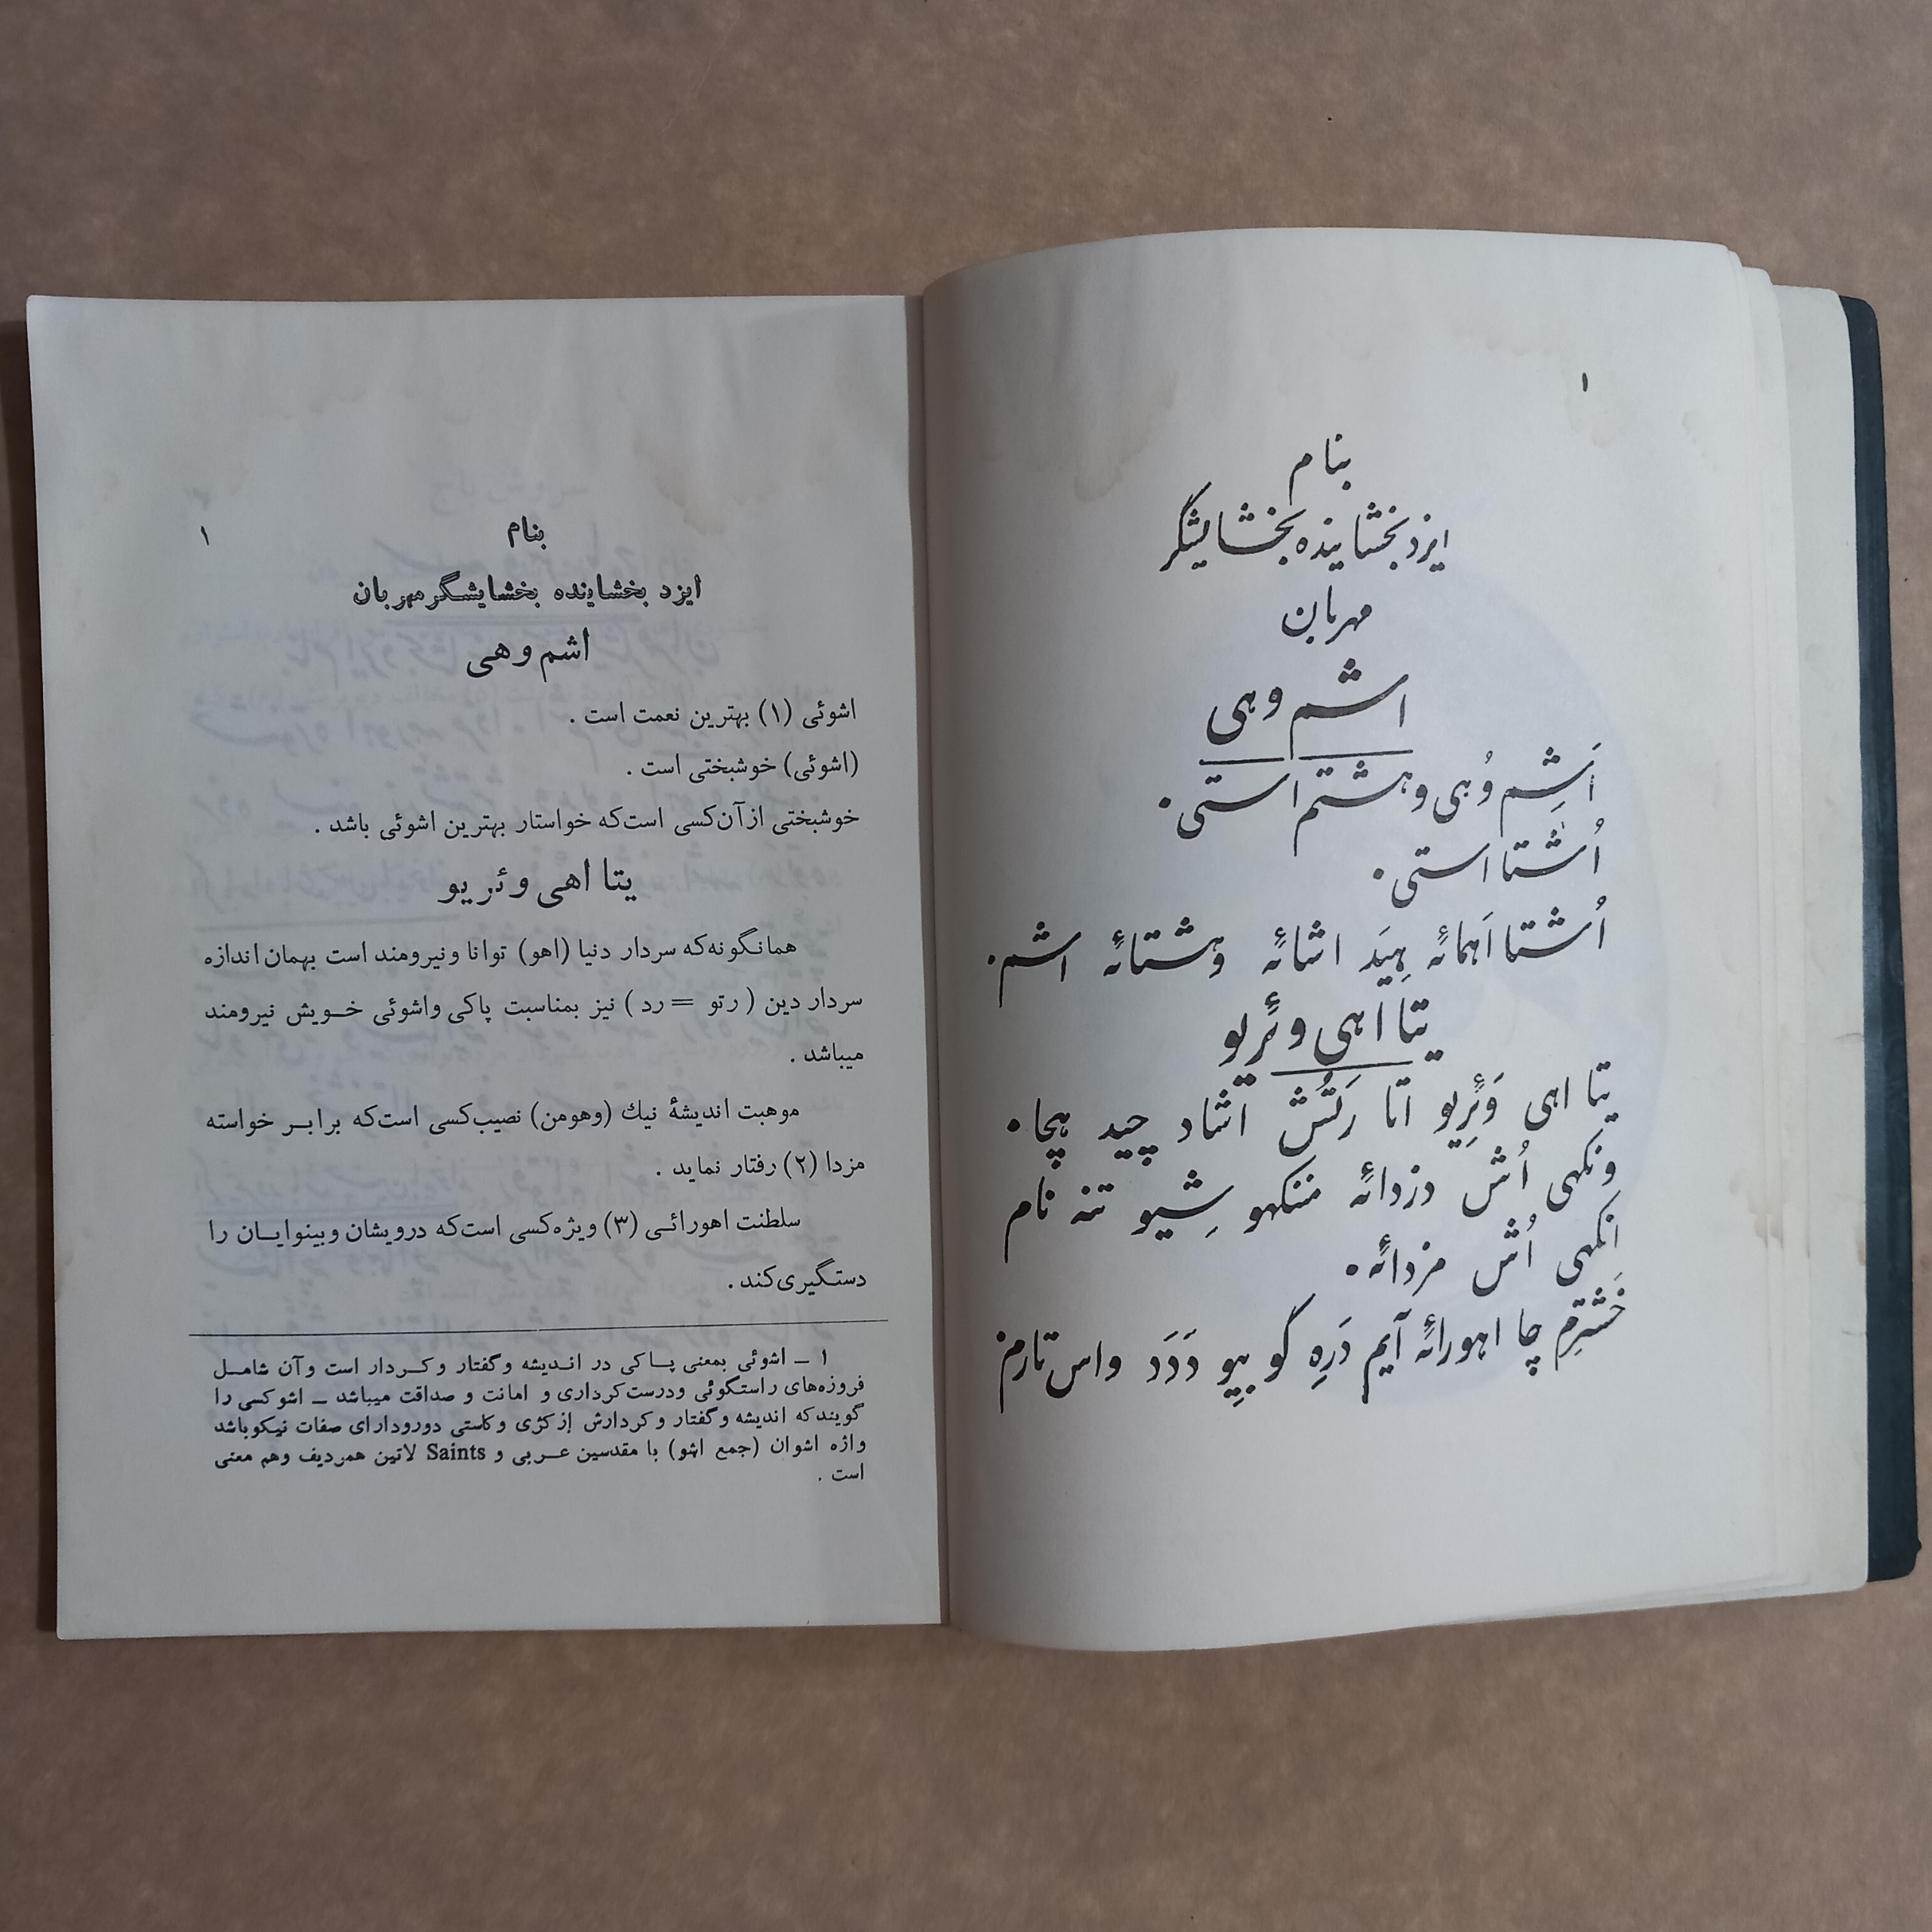 ۱
بنام
ایزد بخشاینده بخشایشگر
مهربان
اشم وهی
اَشِم وُهی وهشتم استی .
اُشتا استی .
اُشتا اَهمائه هِیَد اشائه وهشتائه اشم .
یتا اهی وئریو
یتا اهی وَئِریو اتا رَتُش اشاد چید هچا .
ونگهی اُش دزدائه مننگهو شِیو تنه نام
انگهی اُش مزدائه .
خَشترِم چا اهورائه آیم دَرِه گو بیو دَدَد واس تارم
بنام
۱
ایزد بخشاینده بخشایشگر مهربان
اشم وهی
اشوئی (۱) بهترین نعمت است .
(اشوئی) خوشبختی است .
خوشبختی از آن کسی است که خواستار بهترین اشوئی باشد .
یتا اهی وئریو
همانگونه که سردار دنیا (اهو) توانا و نیرومند است بهمان اندازه
سردار دین ( رتو = رد ) نیز بمناسبت پاکی واشوئی خویش نیرومند
میباشد .
موهبت اندیشهٔ نیك (وهومن) نصیب کسی است که برابر خواسته
مزدا (۲) رفتار نماید .
سلطنت اهورائی (۳) ویژه کسی است که درویشان وبینوایان را
دستگیری کند .
۱ ـ اشوئی بمعنی پاکی در اندیشه وگفتار وکردار است وآن شامل
فروزه‌های راستگوئی ودرست کرداری و امانت و صداقت میباشد ـ اشو کسی را
گویند که اندیشه وگفتار وکردارش از کژی وکاستی دورودارای صفات نیکو باشد
واژه اشوان (جمع اشو) با مقدسین عربی و Saints لاتین همردیف وهم معنی
است .